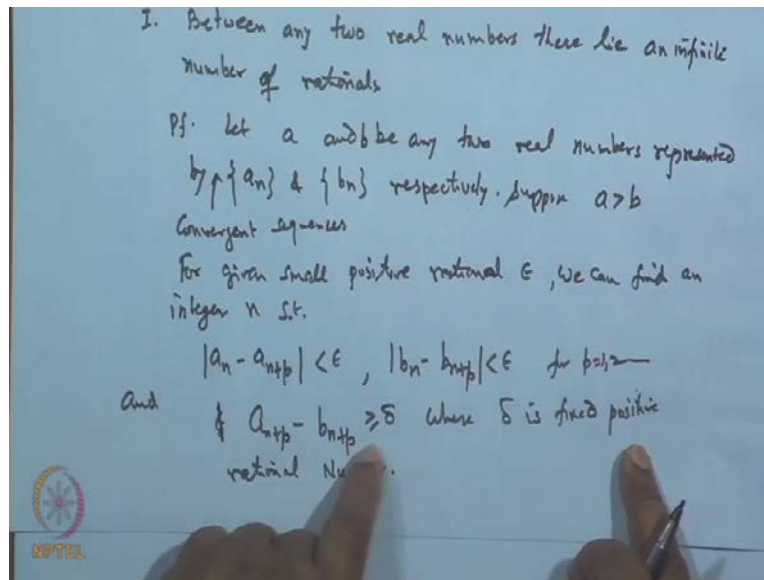 I. Between any two real numbers there lie an infinite
number of rationals
Pf. Let a and b be any two real numbers represented
by {an} & {bn} respectively. Suppose a>b
Convergent sequences
For given small positive rational ϵ, we can find an
integer n s.t.
|an - an+p| < ϵ, |bn - bn+p| < ϵ for p=1,2——
and & an+p - bn+p ≥ δ where δ is fixed positive
rational Nu
NPTEL